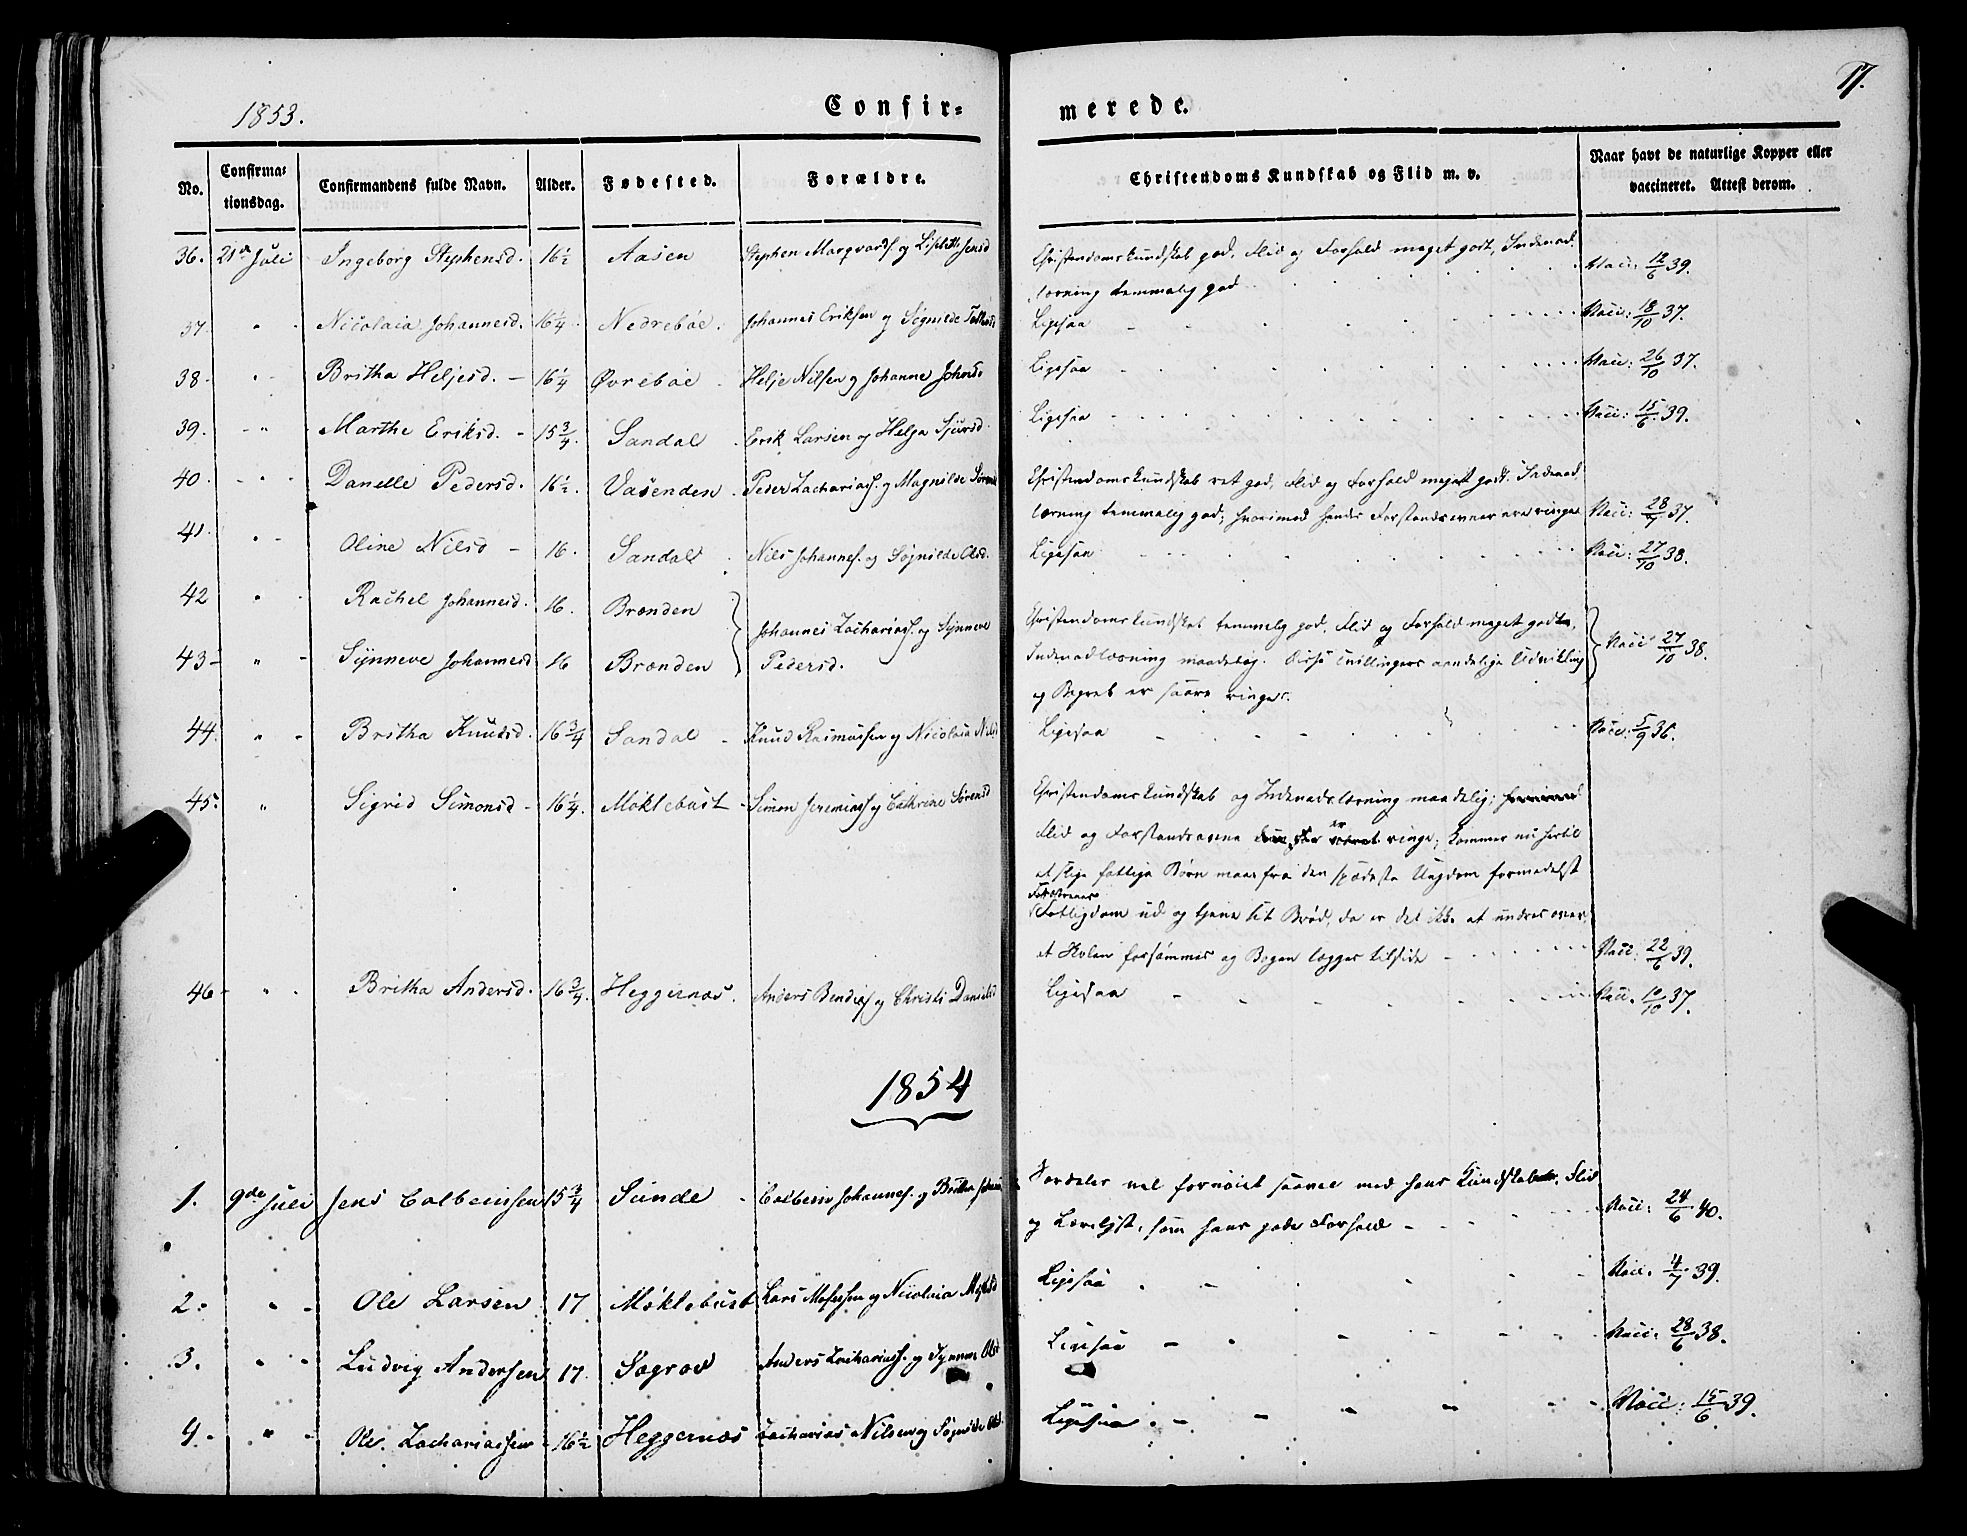 1853.
Confir=
merede.
17.
No.
Confirma=
tionsdag.
Confirmandens fulde Navn.
Alder.
Fødested.
Forældre.
Christendoms Kundskab og Flid m. v.
Naar havt de naturlige Kopper eller
vaccineret. Attest derom.
36. 21de Juli Ingeborg Stephensd. 16½ Aasen Stephen Marqvards. og Lisbeth Jensd Christendomskundskab god, Flid og Forhold meget godt, Indenad
læsning temmelig god Vacc: 12/6 39.
37. " Nicolaia Johannesd. 16¼ Nedrebøe. Johannes Eriksen og Signilde Ligesaa Vacc: 18/10 37.
38. " Britha Heljesd. 16¼ Øvrebøe Helje Nilsen og Johanne Johnsd Ligesaa Vacc: 26/10 37.
39. " Marthe Eriksd. 15¾ Sandal Erik Larsen og Helga Sjursd. Ligesaa Vacc: 15/6 39.
40. " Danelle Pedersd. 16½. Vasenden Peder Zachariass. og Magnilde Christendomskundskab ret god, Flid og Forhold meget godt. Indenad
læsning temmelig god; hvorimod hendes Forstandsevner ere ringe Vacc: 28/7 37.
41. " Oline Nilsd 16. Sandal Nils Johanness. og Søgnilde Olsd. Ligesaa Vacc: 27/10 38.
42 " Rachel Johannesd. 16. Brænden Johannes Zachariass. og Synneve Christendomskundskab temmelig god, Flid og Forhold meget godt,
43 " Synneve Johannesd 16 Brænden Pedersd. Indenadlæsning maadelig. Disse Tvillingers aandelige Udvikling Vacc 27/10 38.
og Begreb er saare ringe.
44. " Britha Knudsd. 16¾ Sandal Knud Rasmussen og Nicolaia Nilsd Ligesaa Vacc: 5/9 36.
45. " Sigrid Simonsd 16¼. Møklebust Simon Jeremiass og Cathrine Sørensd Christendomskundskab og Indenadslæsning maadelig;
Flid og Forstandsevne er ringe; kommer nu hertil
at slige fattige Børn maae fra den spædeste Ungdom formedelst
Forældrenes
Fattigdom ud og tjene sit Brød, da er det ikke at undres over,
at Skolen forsømmes og Bogen lægges tilside Vacc: 22/6 39.
46 " Britha Andersd. 16¾. Heggernæs. Anders Bendixs og Christi Danielsd Ligesaa Vacc. 10/10 37.
1854
1. 9de Juli Jens Colbeinssen 15¾ Sunde Colbein Johanness. og Britha Særdeles vel fornøiet saavel med hans Kundskaber, Flid
og Lærelyst, som hans gode Forhold Vacc: 24/6 40.
2. " Ole Larsen 17 Møklebust Lars Mosessen og Nicolaia Ligesaa Vacc. 4/7 39.
3. " Ludvig Andersen 17. Søgrov Anders Zachariass. og Synneve Ligesaa Vacc: 28/6 38.
4. " Ole Zachariassen 16½ Heggernæs Zacharias Nilsen og Søgnilde Ligesaa Vacc: 15/6 39.